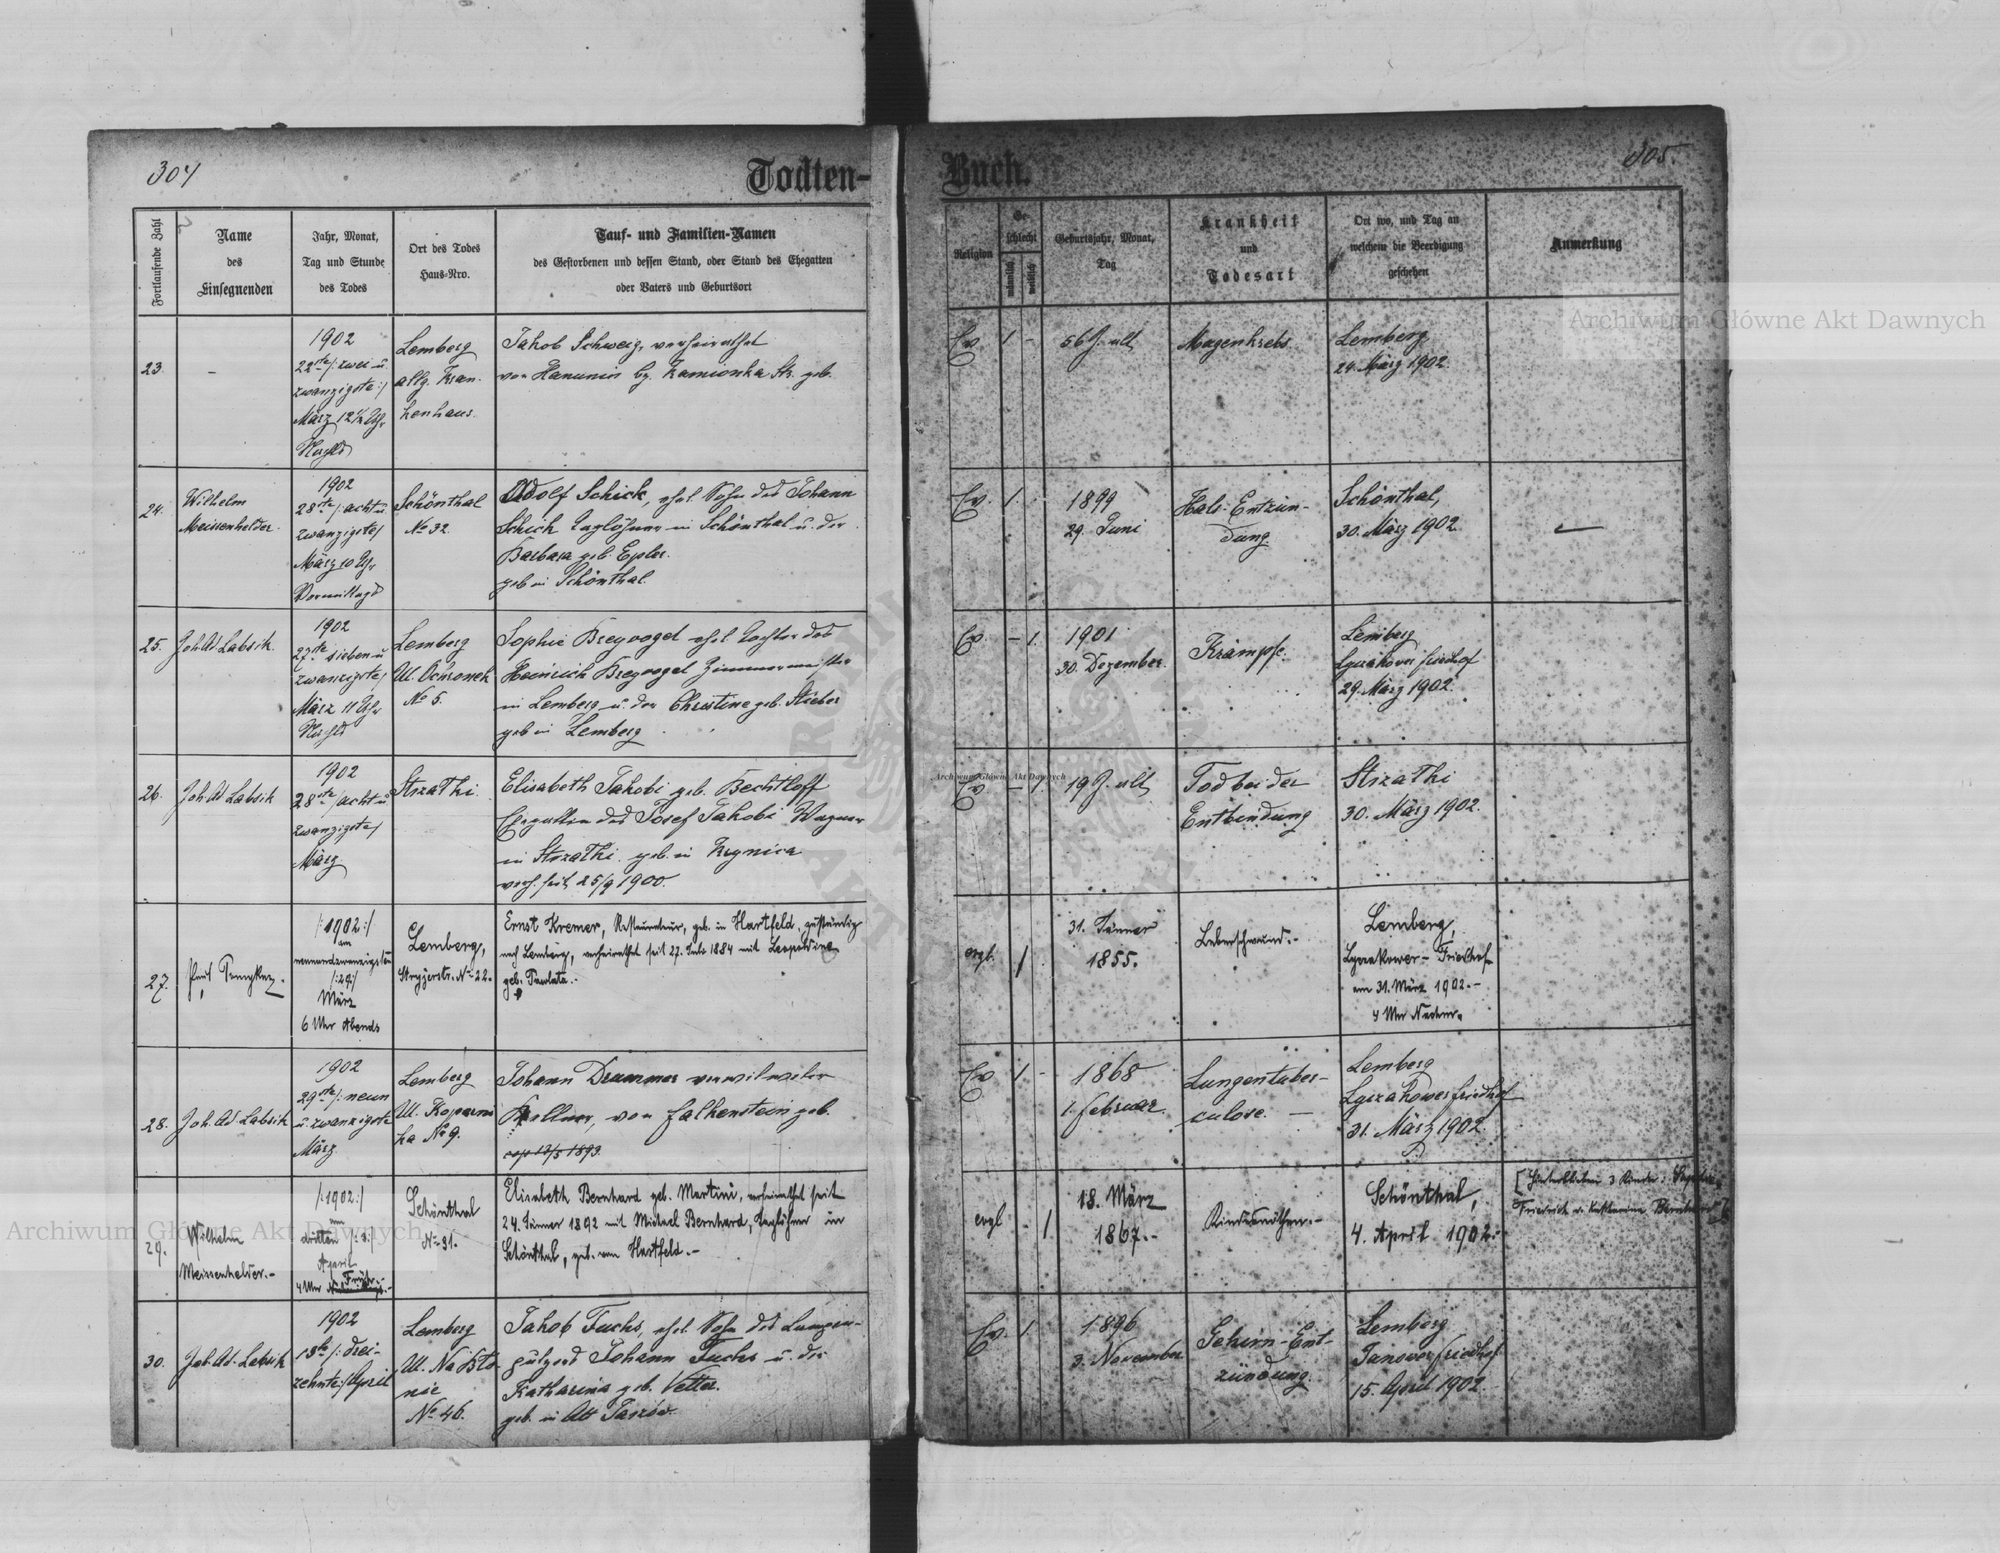 304
Todten-
Fortlaufende Zahl
Name
des
Einsegnenden
Jahr, Monat,
Tag und Stunde
des Todes
Ort des Todes
Haus-Nro.
Tauf- und Familien-Namen
des Gestorbenen und dessen Stand, oder Stand des Ehegatten
oder Vaters und Geburtsort
23.
-
1902
22te /: zwei u.
zwanzigste :/
März 12½ Uhr
Nachts
Lemberg
allg. Kran-
kenhaus.
Jakob Schweig, verheirathet
von Hanunin bz. Kamionka Str. geb.
24.
Wilhelm
Meissenhelder.
1902
28te /: acht u.
zwanzigste/
März 10 Uhr
Vormittags
Schönthal
No 32.
Adolf Schick, ehel. Sohn des Johann
Schick Taglöhner in Schönthal u. der
Barbara geb. Epler.
geb in Schönthal.
25.
Joh. Ad. Labsik.
1902
27te sieben u
zwanzigste/
März 11 Uhr
Nachts
Lemberg
Ul. Ochronek
No 5.
Sophie Breyvogel ehel. Tochter des
Heinrich Breyvogel Zimmermeister
in Lemberg u. der Christine geb. Stieber
geb in Lemberg
26.
Joh. Ad Labsik
1902
28te / acht u
zwanzigste/
März
Strzathi
Elisabeth Jakobi geb. Bechtloff
Ehegattin des Josef Jakobi Wagner
in Strzathi geb. in Krynica
verh. seit 25/9 1900.
27.
/: 1902 :/
am
neunundzwanzigsten
/: 29 :/
März
6 Uhr Abends
Lemberg,
Stryjerstr. No 22.
Ernst Kremer, Restaurateur, geb. in Hartfeld, zuständig
nach Lemberg, verheirathet seit 27. Juli 1884 mit Leopoldine
geb.
28.
Joh. Ad. Labsik
1902
29te /: neun
u. zwanzigste
März
Lemberg
Ul. Koperni
ka No 9.
Johann Drummer verwitweter
Kellner, von Falkenstein geb.
cop 12/5 1893.
29.
Wilhelm
Meissenhelder.-
/: 1902 :/
am
dritten /: 3 :/
April
4 Uhr Früh.-
Schönthal
No 31.
Elisabeth Bernhard geb. Martini, verheirathet seit
24. Jänner 1892 mit Michael Bernhard, Taglöhner in
Schönthal, geb. von Hartfeld.-
30.
Joh. Ad. Labsik
1902
13te /: drei-
zehnte :/ April
Lemberg
Ul. Na Bło-
nie
No 46.
Jakob Fuchs, ehel. Sohn des
Johann Fuchs u. der
Katharina geb. Vetter.
geb. in Alt Jazów.
Buch.
305.
Religion
Ge-
schlecht
männlich
weiblich
Geburtsjahr, Monat,
Tag
Krankheit
und
Todesart
Ort wo, und Tag an
welchem die Beerdigung
geschehen
Anmerkung
Ev.
1
-
56 J. alt
Magenkrebs
Lemberg
24. März 1902.
Ev.
1
1899
29. Juni
Hals-Entzün-
dung
Schönthal,
30. März 1902.
Ev.
-
1.
1901
30. Dezember.
Krämpfe.
Lemberg
Lyczakower friedhof
29. März 1902.
Ev
-
1
19 J. alt
Tod bei der
Entbindung
Strzathi
30. März 1902.
evgl.
1
31. Jänner
1855.
Leberschwund.-
Lemberg,
Lyczakower-Friedhof
am 31. März 1902.-
4 Uhr Nachm.
Ev
1
-
1868
1. Februar
Lungentuber-
culose.
Lemberg
Lyczakower friedhof
31. März 1902.
evgl
-
1
18. März
1867.-
Kindsnöthen.-
Schönthal,
4. April 1902.-
[Hinterblieben 3 Kinder:
Friedrich u. Katharina Bernhard
Ev.
1
1896
3. November
Gehirn-Ent-
zündung.
Lemberg
Janover friedhof
15. April 1902.
Archiwum Główne Akt Dawnych
Archiwum Główne Akt Dawnych
Archiwum Główne Akt Dawnych